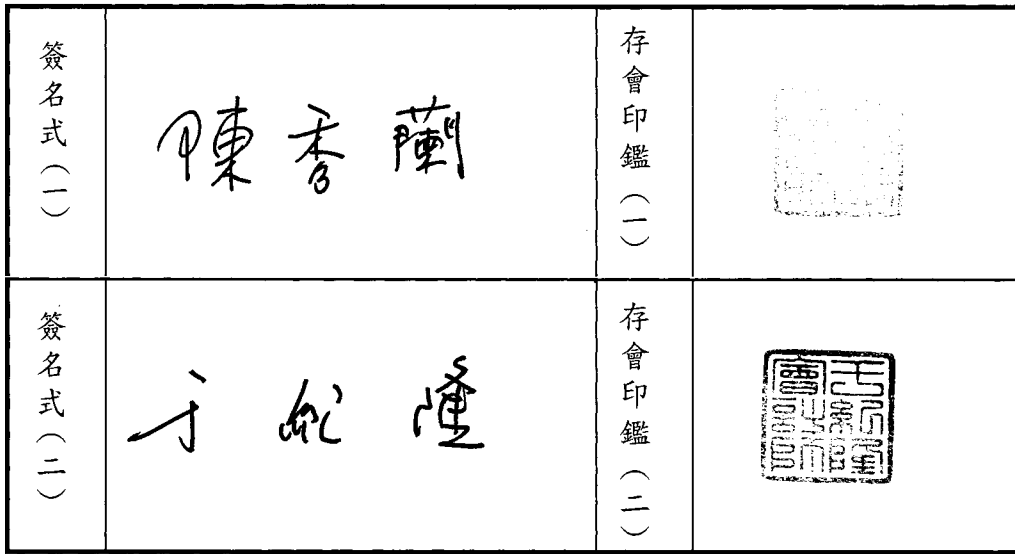 簽名式(一)
陳香蘭
存會印鑑(一)
簽名式(二)
于紀隆
存會印鑑(二)
于紀隆
會計師